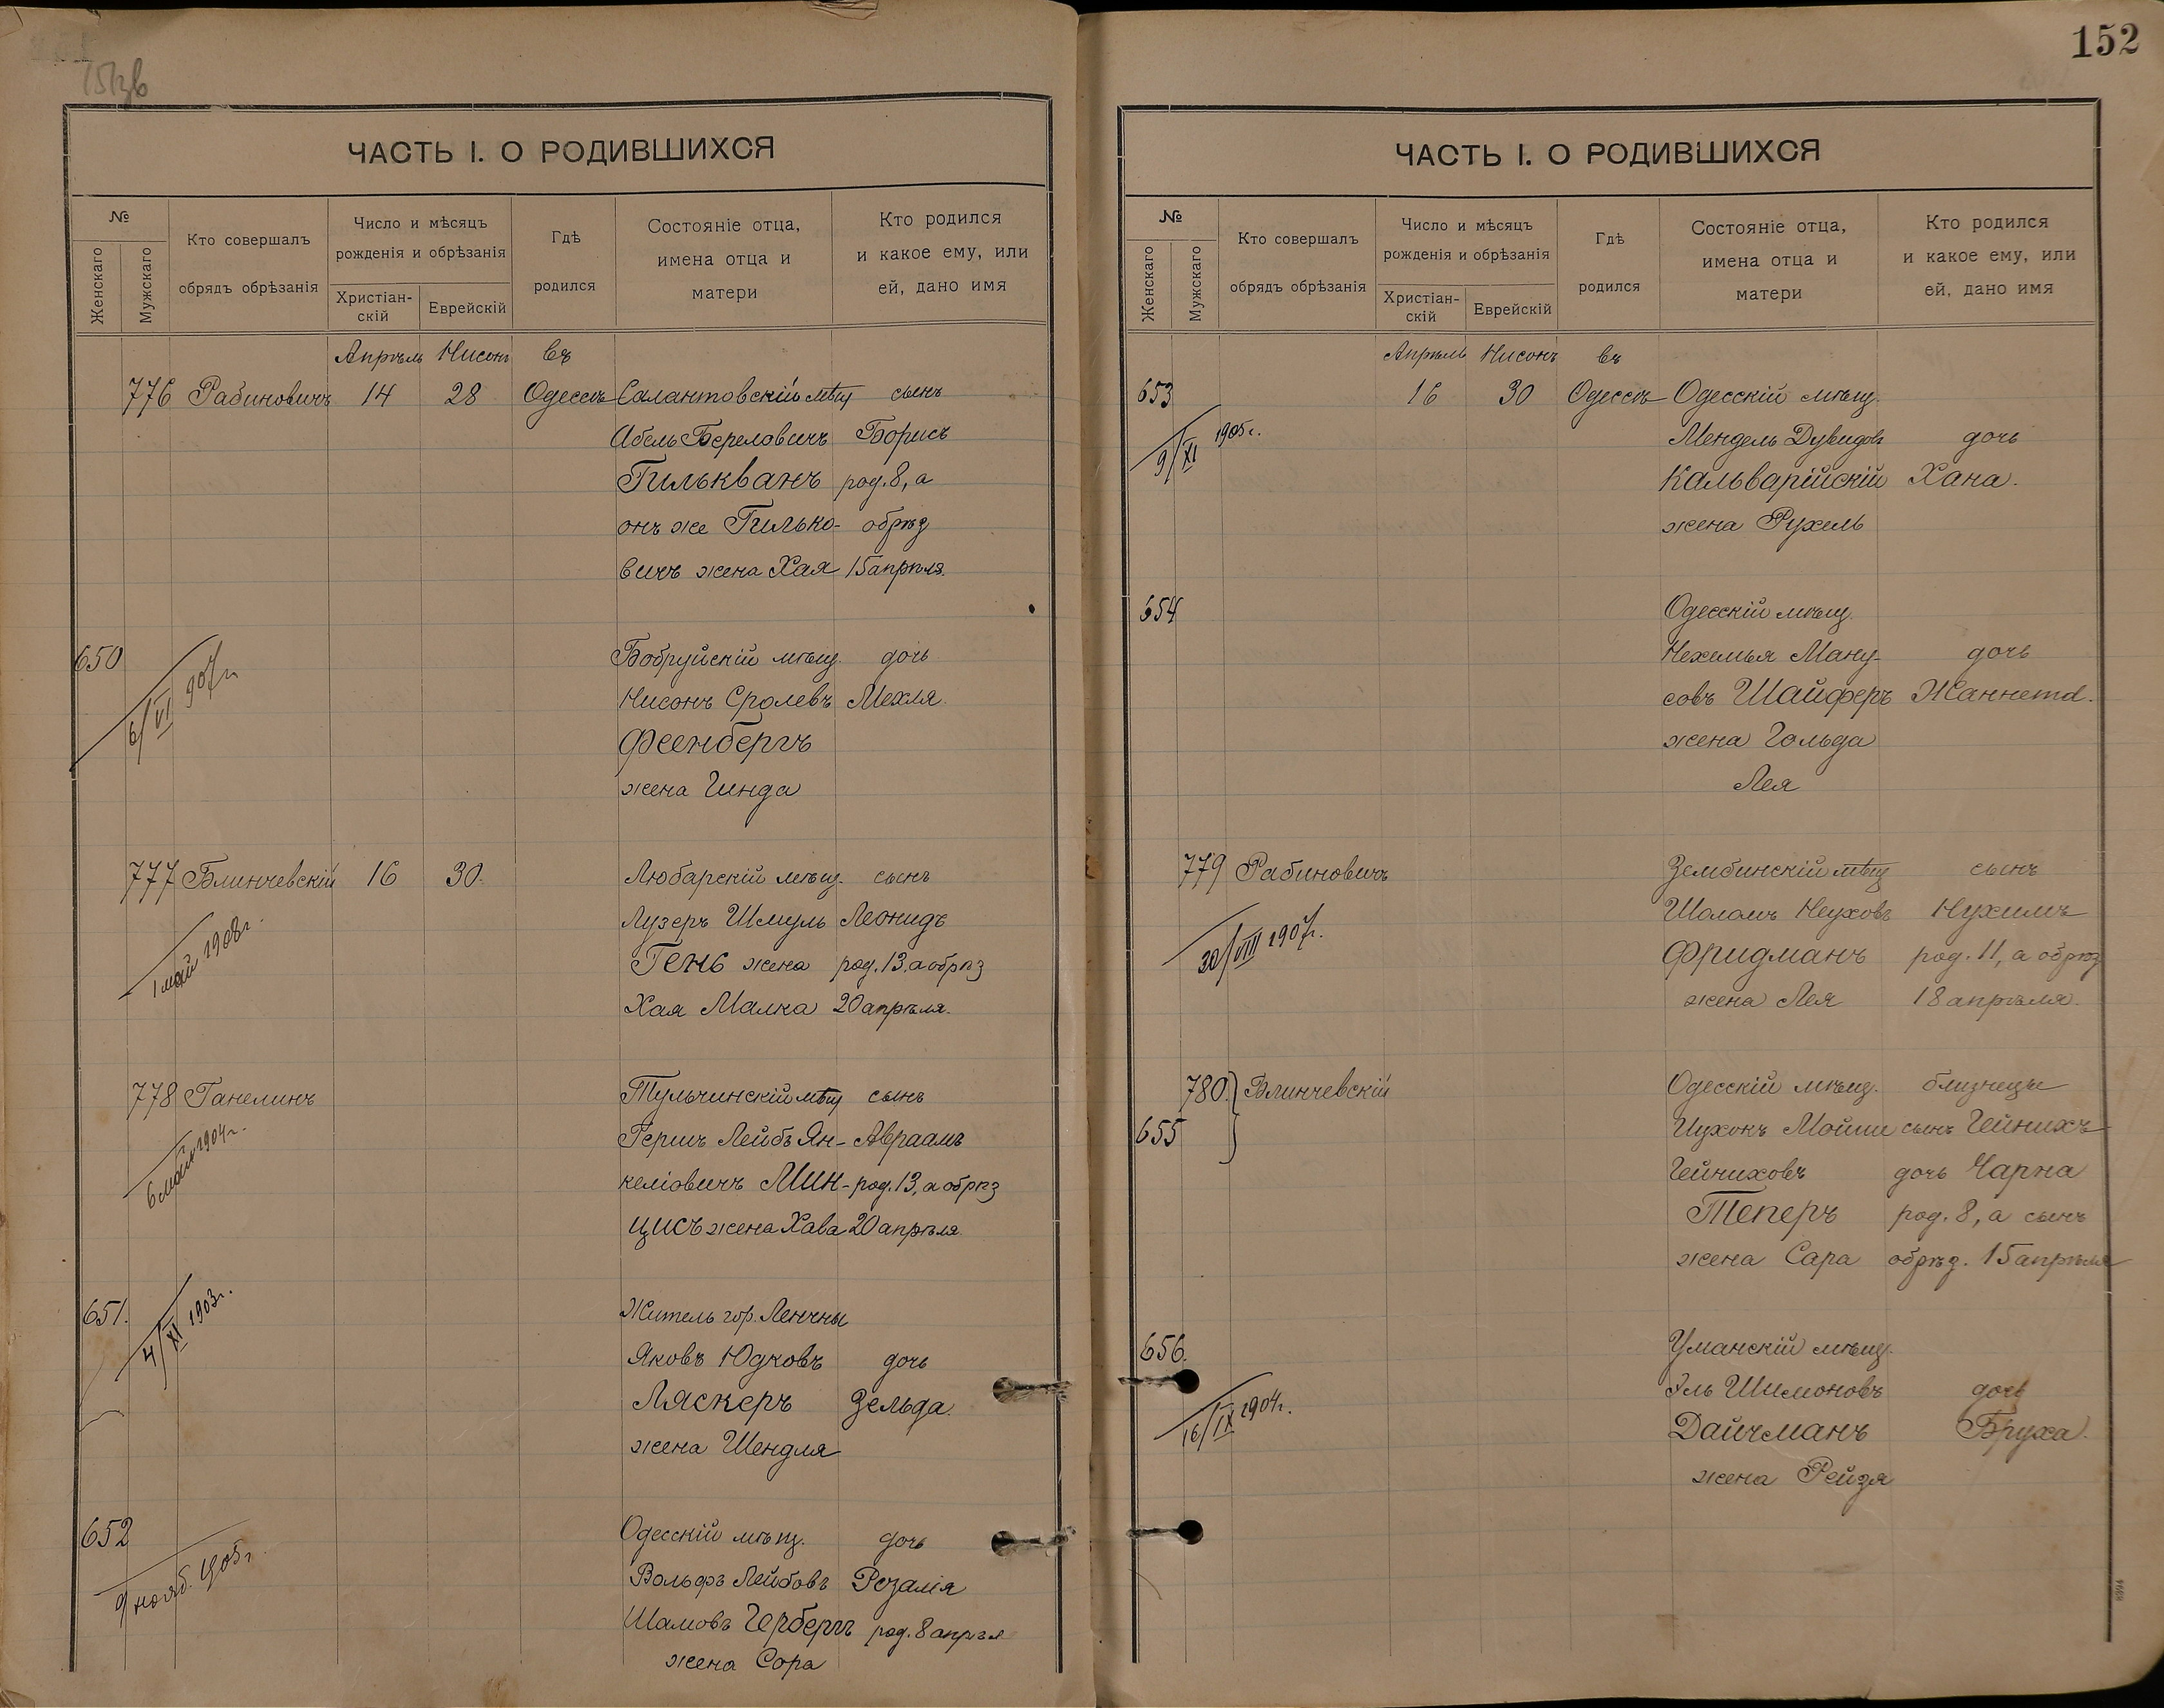 151зв
ЧАСТЬ I. О РОДИВШИХСЯ
№
Женскаго
Мужскаго
Кто совершалъ
обрядъ обрѣзанія
Число и мѣсяцъ
рожденія и обрѣзанія
Христіан-
скій
Еврейскій
Гдѣ
родился
Состояніе отца,
имена отца и
матери
Кто родился
и какое ему, или
ей, дано имя
Апрѣль Нисонъ въ
776 Рабиновичъ 14 28 Одессѣ Салантовскій мѣщ сынъ
Абель Береловичъ Борисъ
Гилькванъ род. 8, а
онъ же Гилько- обрѣз
вичъ жена Хая 15 апрѣля.
650 Бобруйскій мѣщ. дочь
6/VI 907г. Нисонъ Сролевъ Мехля.
Феенбергъ
жена Гинда
777 Блинчевскій 16 30. Любарскій мѣщ. сынъ
1 май 1908г. Лузеръ Шмуль Леонидъ
Гень жена род. 13, а обрѣз
Хая Малка 20 апрѣля.
778 Ганелинъ Тульчинскій мѣщ сынъ
6 май 1904г. Гершъ Лейбъ Ян- Авраамъ
келіовичъ Мин- род. 13, а обрѣз
цисъ жена Хава 20 апрѣля
651. Житель гор. Ленчны
4/XI 1903г. Яковъ Юдковъ дочь
Ляскеръ Зельда.
жена Шендля
652 Одесскій мѣщ. дочь
9 нояб. 1905г. Вольфъ Лейбовъ Розалія
Шамовъ Герберъ род. 8 апрѣл
жена Сора
152
ЧАСТЬ I. О РОДИВШИХСЯ
№
Женскаго
Мужскаго
Кто совершалъ
обрядъ обрѣзанія
Число и мѣсяцъ
рожденія и обрѣзанія
Христіан-
скій
Еврейскій
Гдѣ
родился
Состояніе отца,
имена отца и
матери
Кто родился
и какое ему, или
ей, дано имя
Апрѣль Нисонъ въ
653 16 30 Одессѣ Одесскій мѣщ.
9/XI 1905г. Мендель Дувидовъ дочь
Кальварійскій Хана.
жена Рухель
654 Одесскій мѣщ.
Нехемья Ману- дочь
совъ Шайферъ Жаннета.
жена Гольда
Лея
779 Рабиновичъ Зембинскій мѣщ сынъ
30/VIII 1907г. Шоломъ Неуховъ Нухимъ
Фридманъ род. 11, а обрѣз
жена Лея 18 апрѣля.
780. Блинчевскій Одесскій мѣщ. близнецы
655 Ицхокъ Мойше сынъ Гейнихъ
Гейниховъ дочь Чарна
Теперъ род. 8, а сынъ
жена Сара обрѣз. 15 апрѣля
656. Уманскій мѣщ.
16/IX 1904г. Эль Шимоновъ дочь
Дайчманъ Бруха.
жена Рейзя